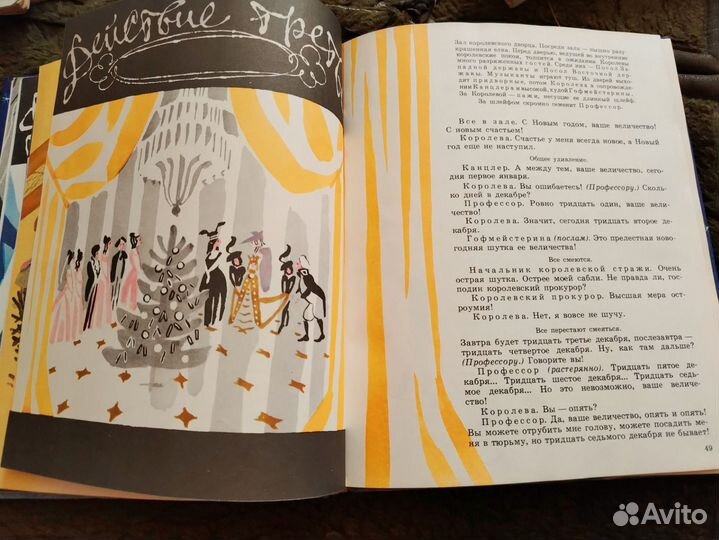 Действие трет
Зал королевского дворца. Посреди зала — пышно разу-
крашенная елка. Перед дверью, ведущей во внутренние
королевские покои, толпится в ожидании Королевы
много разряженных гостей. Среди них — Посол За-
падной державы и Посол Восточной дер-
жавы. Музыканты играют туш. Из дверей выхо-
дят придворные, потом Королева в сопровожде-
нии Канцлера и высокой, худой Гофмейстерины.
За Королевой — пажи, несущие ее длинный шлейф.
За шлейфом скромно семенит Профессор.
Все в зале. С Новым годом, ваше величество!
С новым счастьем!
Королева. Счастье у меня всегда новое, а Новый
год еще не наступил.
Общее удивление.
Канцлер. А между тем, ваше величество, сего-
дня первое января.
Королева. Вы ошибаетесь! (Профессору.) Сколь-
ко дней в декабре?
Профессор. Ровно тридцать один, ваше вели-
чество!
Королева. Значит, сегодня тридцать второе де-
кабря.
Гофмейстерина (послам). Это прелестная ново-
годняя шутка ее величества!
Все смеются.
Начальник королевской стражи. Очень
острая шутка. Острее моей сабли. Не правда ли, гос-
подин королевский прокурор?
Королевский прокурор. Высшая мера ост-
роумия!
Королева. Нет, я вовсе не шучу.
Все перестают смеяться.
Завтра будет тридцать третье декабря, послезавтра —
тридцать четвертое декабря. Ну, как там дальше?
(Профессору.) Говорите вы!
Профессор (растерянно). Тридцать пятое де-
кабря... Тридцать шестое декабря... Тридцать седь-
мое декабря... Но это невозможно, ваше величе-
ство!
Королева. Вы — опять?
Профессор. Да, ваше величество, опять и опять!
Вы можете отрубить мне голову, можете посадить ме-
ня в тюрьму, но тридцать седьмого декабря не бывает!
49
Avito